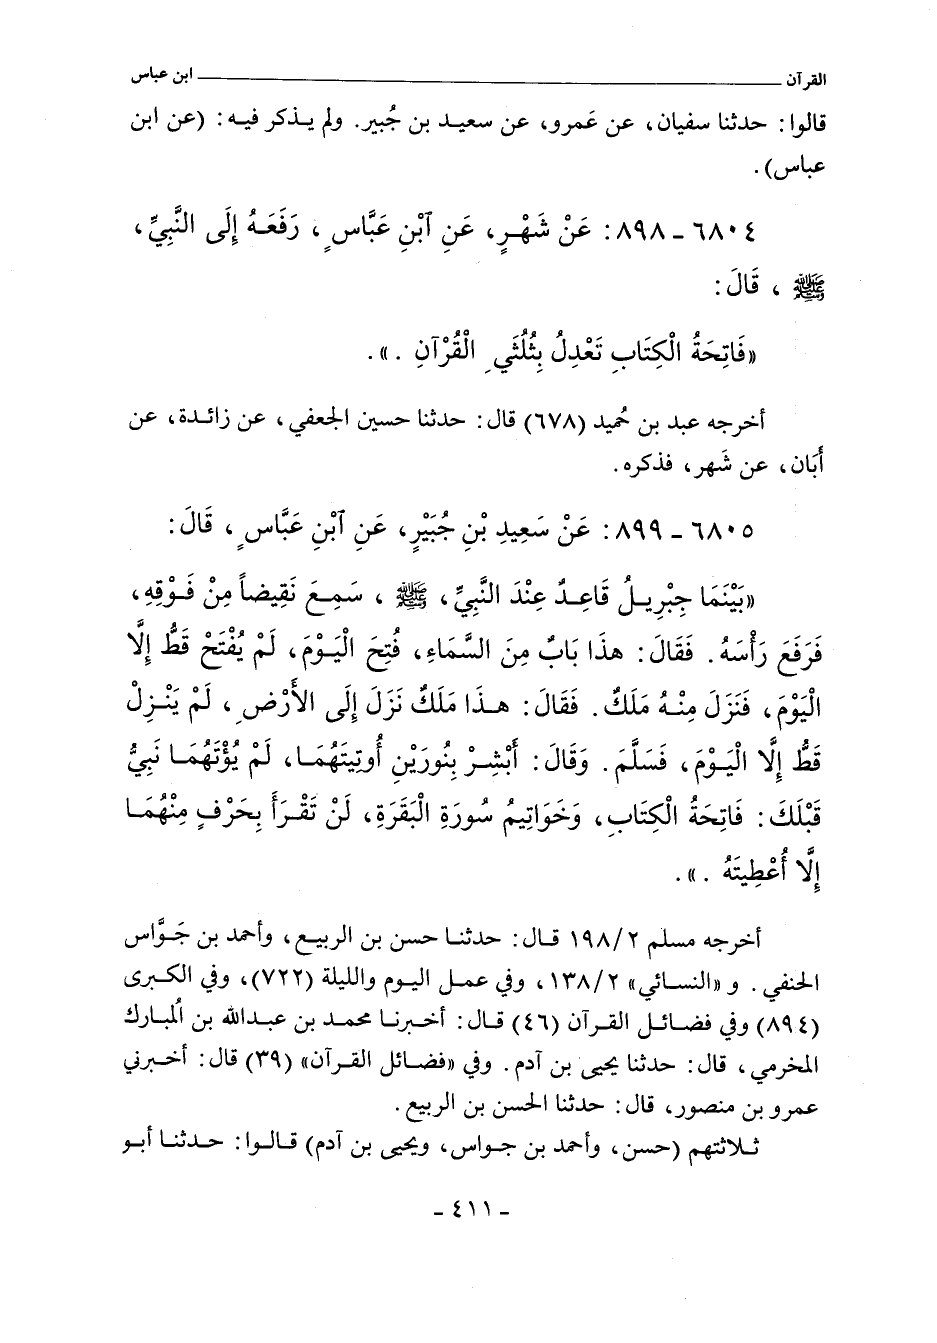 القرآن ـــــــــــــــــــــــــــــــــــــــــــــــــ ابن عباس
قالوا: حدثنا سفيان، عن عَمرو، عن سعيد بن جُبير. ولم يذكر فيه: (عن ابن
عباس).
٦٨٠٤ ـ ٨٩٨: عَنْ شَهْرٍ، عَنِ ٱبْنِ عَبَّاسٍ، رَفَعَهُ إِلَى النَّبِيِّ،
ﷺ، قَالَ:
«فَاتِحَةُ الْكِتَابِ تَعْدِلُ بِثُلُثَيِ الْقُرْآنِ.».
أخرجه عبد بن حُميد (٦٧٨) قال: حدثنا حسين الجعفي، عن زائدة، عن
أَبَان، عن شَهر، فذكره.
٦٨٠٥ ـ ٨٩٩: عَنْ سَعِيدِ بْنِ جُبَيْرٍ، عَنِ ٱبْنِ عَبَّاسٍ، قَالَ:
«بَيْنَمَا جِبْرِيلُ قَاعِدٌ عِنْدَ النَّبِيِّ، ﷺ، سَمِعَ نَقِيضاً مِنْ فَوْقِهِ،
فَرَفَعَ رَأْسَهُ. فَقَالَ: هٰذَا بَابٌ مِنَ السَّمَاءِ، فُتِحَ الْيَوْمَ، لَمْ يُفْتَحْ قَطُّ إِلَّا
الْيَوْمَ، فَنَزَلَ مِنْهُ مَلَكٌ. فَقَالَ: هٰذَا مَلَكٌ نَزَلَ إِلَى الأَرْضِ، لَمْ يَنْزِلْ
قَطُّ إِلَّا الْيَوْمَ، فَسَلَّمَ. وَقَالَ: أَبْشِرْ بِنُورَيْنِ أُوتِيتَهُمَا، لَمْ يُؤْتَهُمَا نَبِيٌّ
قَبْلَكَ: فَاتِحَةُ الْكِتَابِ، وَخَوَاتِيمُ سُورَةِ الْبَقَرَةِ، لَنْ تَقْرَأَ بِحَرْفٍ مِنْهُمَا
إِلَّا أُعْطِيتَهُ.».
أخرجه مسلم ١٩٨/٢ قال: حدثنا حسن بن الربيع، وأحمد بن جَوَّاس
الحنفي. و«النسائي» ١٣٨/٢، وفي عمل اليوم والليلة (٧٢٢)، وفي الكبرى
(٨٩٤) وفي فضائل القرآن (٤٦) قال: أخبرنا محمد بن عبدالله بن المُبارك
المخرمي، قال: حدثنا يحيى بن آدم. وفي «فضائل القرآن» (٣٩) قال: أخبرني
عمرو بن منصور، قال: حدثنا الحسن بن الربيع.
ثلاثتهم (حسن، وأحمد بن جواس، ويحيى بن آدم) قالوا: حدثنا أبو
- ٤١١ -